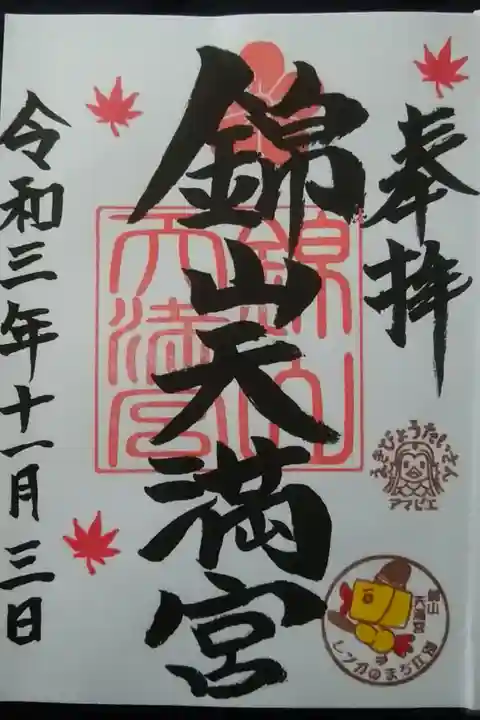 奉拝
錦山天満宮
錦山天満宮
令和三年十一月三日
えきびょうたいさん
アマビエ
錦山
天満宮
レンガのまち江別